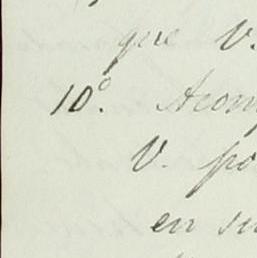 que V.
10º. Acom
V. po
en su